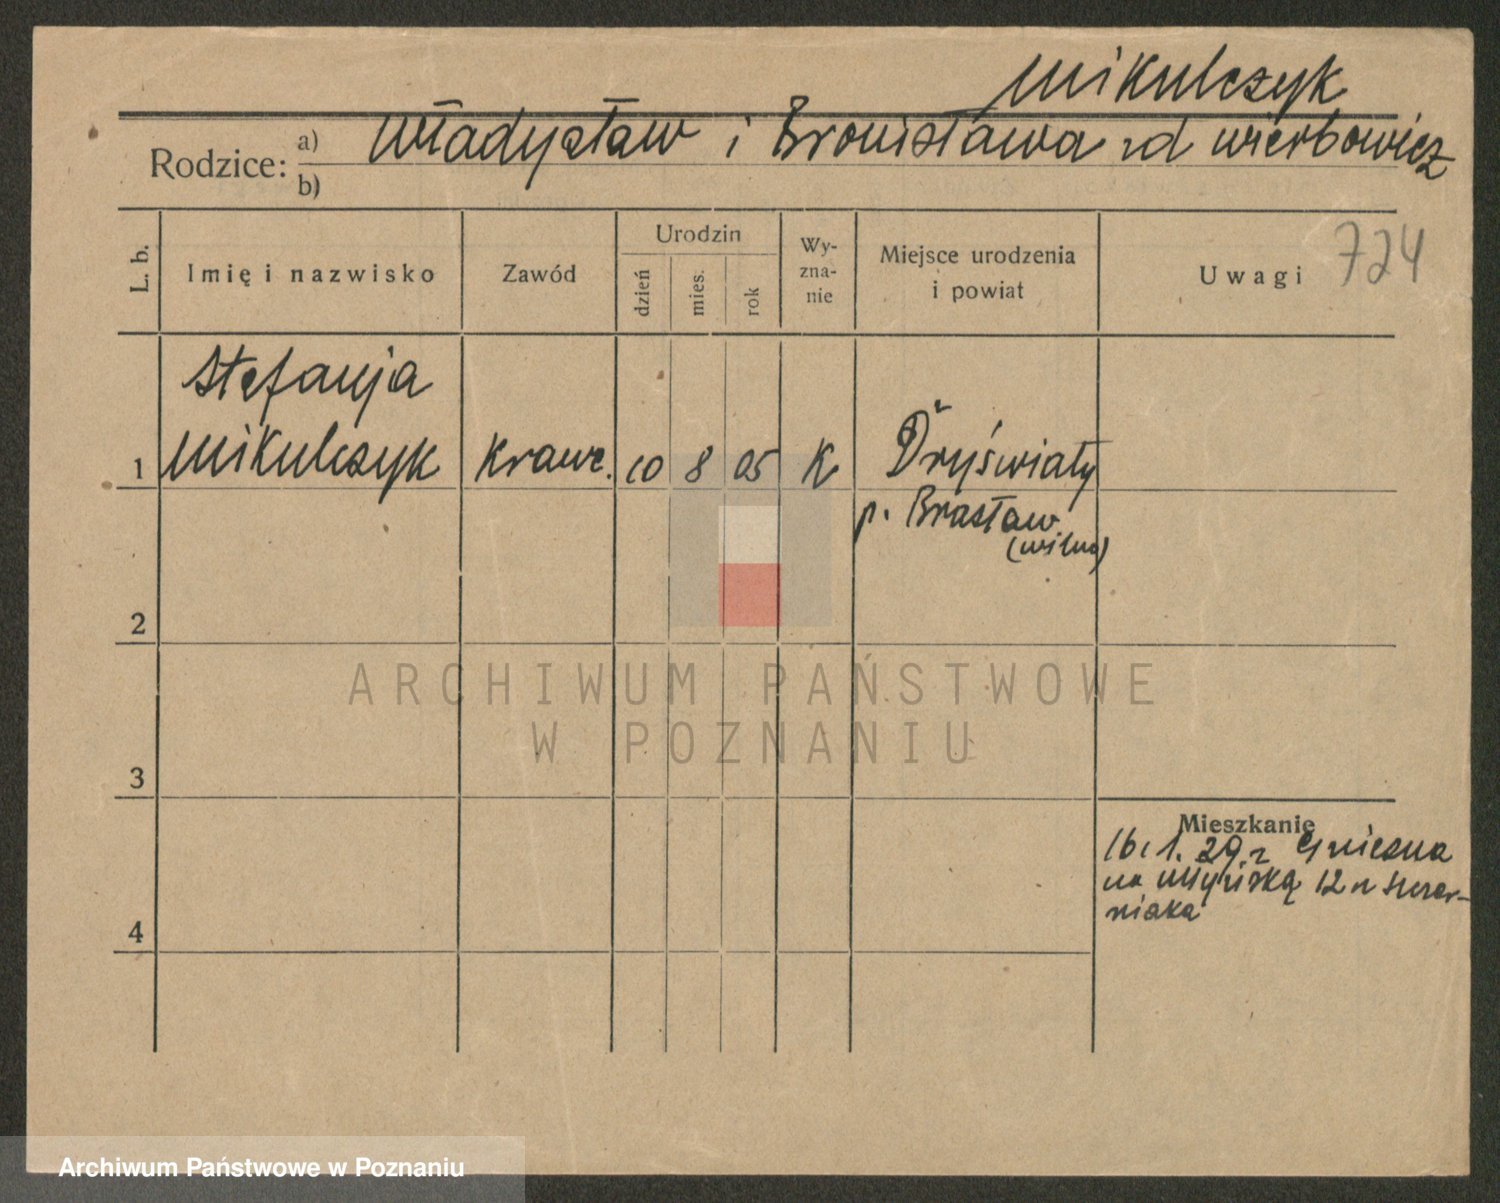 Mikulczyk
Rodzice: a) Władysław i Bronisława zd Wierbowicz
b)
L. b.
Imię i nazwisko
Zawód
Urodzin
dzień
mies.
rok
Wy-
zna-
nie
Miejsce urodzenia
i powiat
Uwagi 724
Stefanja
1 Mikulczyk Krawc. 10 8 05 K Dryświaty
p. Brasław
(Wilno)
2
ARCHIWUM PAŃSTWOWE
W POZNANIU
3
Mieszkanie
16.1.29. z Gniezna
na Młyńską 12
niaka
4
Archiwum Państwowe w Poznaniu